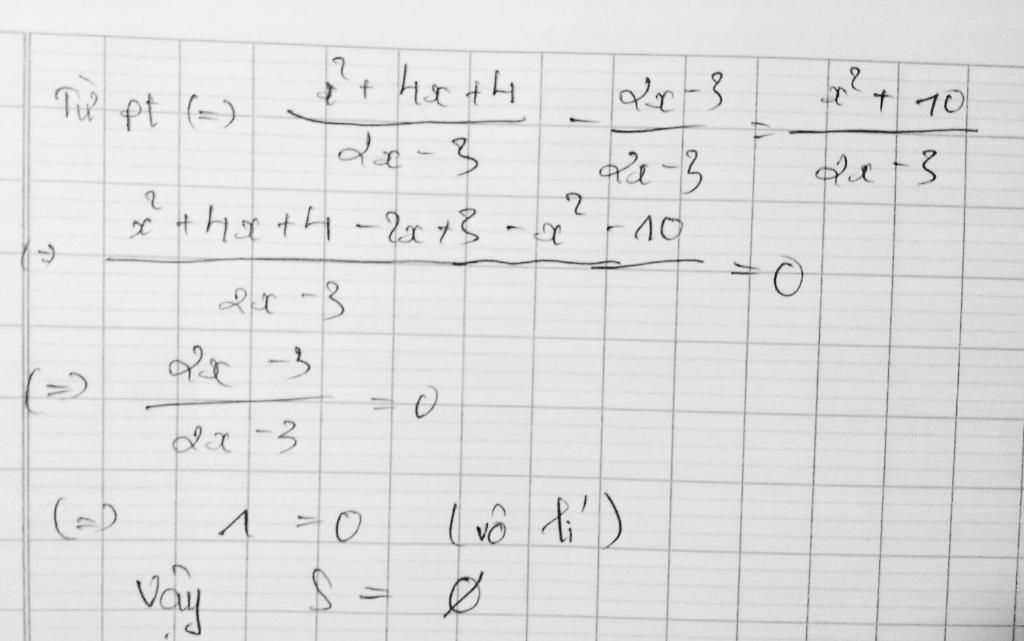 Từ pt (=) (x² + 4x + 4)/(2x - 3) - (2x - 3)/(2x - 3) = (x² + 10)/(2x - 3)
(=) (x² + 4x + 4 - 2x + 3 - x² - 10)/(2x - 3) = 0
(=) (2x - 3)/(2x - 3) = 0
(=) 1 = 0 (vô lí)
Vậy S = Ø